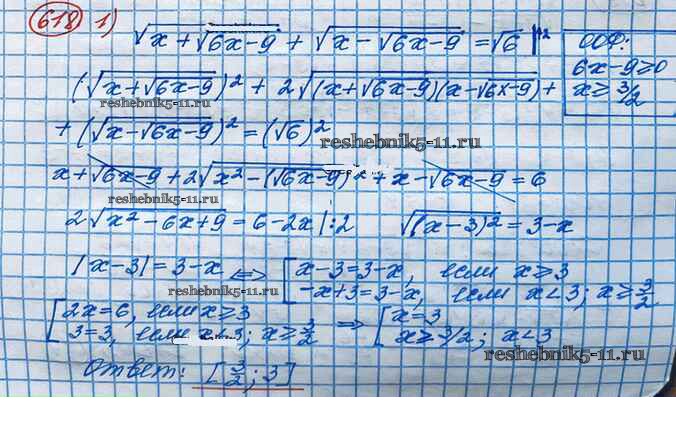 618 1) √(x + √(6x-9)) + √(x - √(6x-9)) = √6 |↑2
ООФ:
6x-9≥0
x≥3/2
(√(x+√(6x-9)))² + 2√((x+√(6x-9))(x-√(6x-9))) +
reshebnik5-11.ru
+ (√(x-√(6x-9)))² = (√6)²
reshebnik5-11.ru
x+√(6x-9)+2√(x²-(√(6x-9))²) + x-√(6x-9) = 6
reshebnik5-11.ru
2√(x²-6x+9) = 6-2x |:2 √((x-3)²) = 3-x
|x-3| = 3-x ⇔ [x-3=3-x, если x≥3
-x+3=3-x, если x<3; x≥3/2
[2x=6, если x≥3
3=3, если x<3; x≥3/2 ⇒ [x=3
x≥3/2; x<3
reshebnik5-11.ru
Ответ: [3/2; 3]